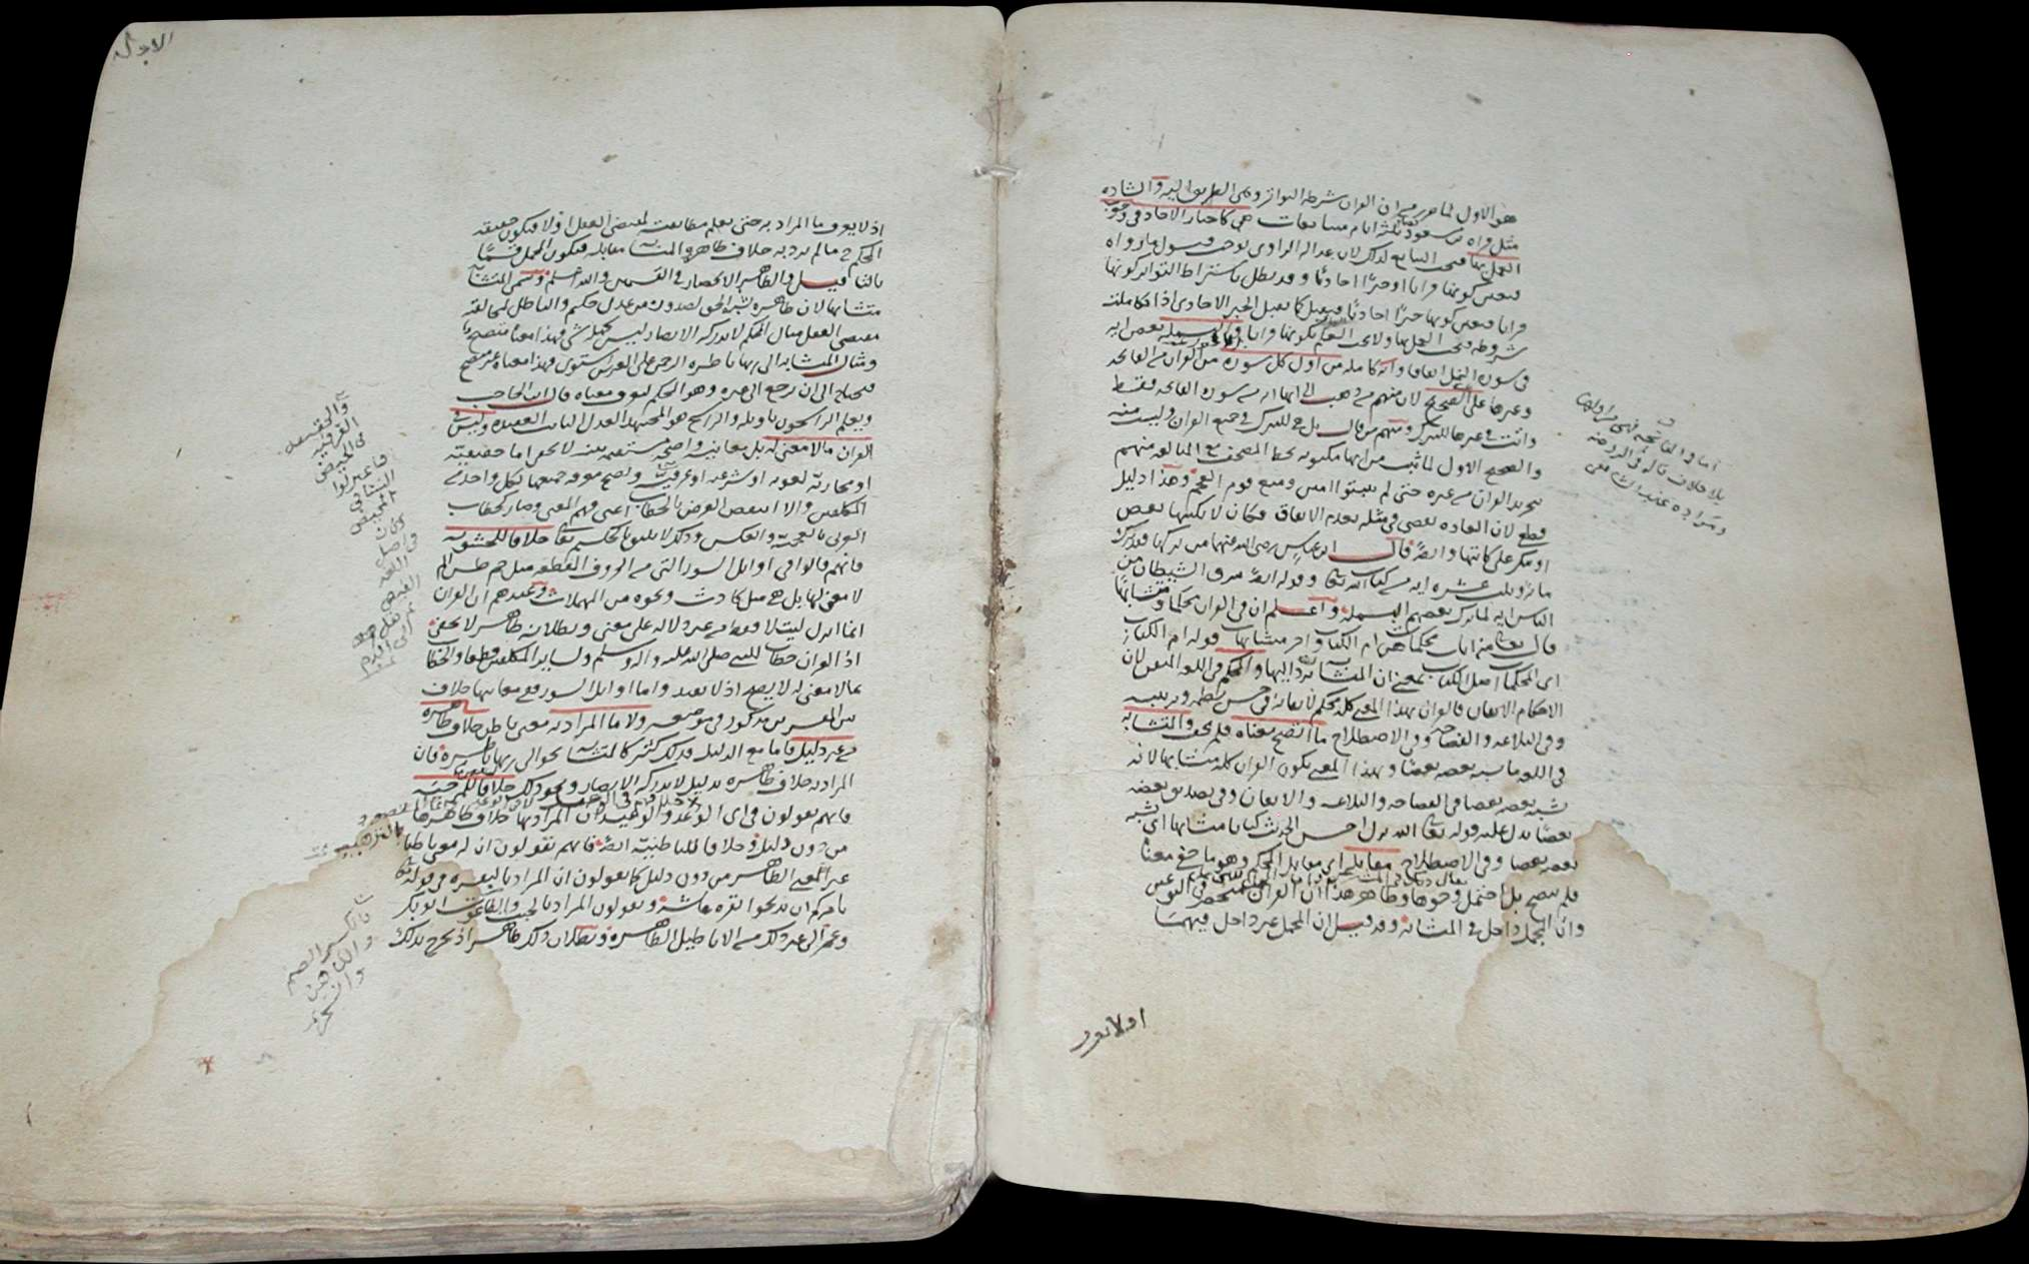 هو الاول لما مر من ان القران شرطه التواتر وهى الطريق اليه والشاذه
مثل قراه بن مسعود ثلثة ايام متتابعات هى كاخبار الاحاد فى وجوب
العمل بها لان عداله الراوى توجب قبول ما رواه
فتعين كونها قرانا او خبرا احاديا وقد بطل باشتراط التواتر كونها
قرانا فتعين كونها خبرا احاديا فيقبل كما يقبل الخبر الاحادى اذا تكاملت
شروطه فيجب العمل بها ولا يجب العلم بكونها قرانا والبسمله بعض ايه
فى سوره النمل اتفاقا وايه كامله من اول كل سوره من القران من الفاتحه
وغيرها على الصحيح لان منهم من ذهب الى انها ايه من سوره الفاتحه فقط
واتت فى غيرها للتبرك ومنهم من قال بل هى للتبرك فى جميع القران وليست منه
والصحيح الاول لما ثبت من انها مكتوبه بخط المصحف مع المبالغه منهم
بتجريد القران من غيره حتى لم يثبتوا امين ومنع قوم العجم وهذا دليل
قطعى لان العاده تقضى فى مثله بعدم الاتفاق فكان لا يكتبها بعض
او ينكر على كاتبها وايضا قال ابن عباس رضى الله عنهما من تركها فقد ترك
مائه وثلث عشره ايه من كتاب الله تعالى وقوله ايضا سرق الشيطان من
الناس ايه لما ترك بعضهم البسمله واعلم ان فى القران محكما ومتشابها
قال تعالى منه ايات محكمات هن ام الكتاب واخر متشابهات قوله ام الكتاب
اى المحكمات اصل الكتاب بمعنى ان المتشابه يرد اليها والمحكم فى اللغه المتقن لان
الاحكام الاتقان فالقران بهذا المعنى كله محكم لاتقانه فى حسن نظمه وترتيبه
وفى البلاغه والفصاحه وفى الاصطلاح ما اتضح معناه فلم يخف والمتشابه
فى اللغه ما يشبه بعضه بعضا وبهذا المعنى يكون القران كله متشابها لانه
يشبه بعضه بعضا فى الفصاحه والبلاغه والاتقان وفى تصديق بعضه
بعضا يدل عليه قوله تعالى الله نزل احسن الحديث كتابا متشابها اى يشبه
بعضه بعضا وفى الاصطلاح مقابله اى مقابل المحكم وهو ما خفى معناه
فلم يتضح بل احتمل وجوها وظاهر هذا ان القران منحصر فى النوعين
وان المجمل داخل فى المتشابه وقد قيل ان المجمل غير داخل فيهما
اما فى الفاتحه فهى من اولها
بلا خلاف قاله فى الروضه
او لا يعرف
الاول
اذ لا يعرف ما المراد به حتى يعلم مطابقته لمقتضى العقل او لا فيكون حقيقه
المحكم ما لم يرد به خلاف ظاهره والمتشابه مقابله فيكون المجمل قسما
ثالثا قيل والظاهر الانحصار فى القسمين والله اعلم وسمى المتشابه
متشابها لان ظاهره يشبه الحق لصدوره من عدل حكيم والباطل لمخالفته
مقتضى العقل مثال المحكم لا تدركه الابصار ليس كمثله شى فهذا معناه متضح
ومثال المتشابه الى ربها ناظره الرحمن على العرش استوى فهذا معناه غير متضح
فيحتاج الى ان يرجع الى غيره وهو المحكم ليعرف معناه قال ابن الحاجب
ويعلم الراسخون تاويله والراسخ هو المجتهد العدل الثابت العقيده وليس فى
القران ما لا معنى له بل معانيه واضحه مستقيمه بينه لا تخفى اما حقيقيه
او مجازيه لغويه او شرعيه او عرفيه ويصح معرفه جميعها لكل واحد من
المكلفين والا انتقض الغرض بالخطاب اعنى فهم المعنى وصار كخطاب
العربى بالعجميه والعكس وذلك لا يليق بالحكيم تعالى خلافا للحشويه
فانهم قالوا فى اوائل السور التى من الحروف المقطعه مثل حم طس الم
لا معنى لها بل هى مثل كادث ونحوه من المهملات وعندهم ان القران
انما انزل ليتلا فقط من غير دلاله على معنى وبطلانه ظاهر لا يخفى
اذ القران خطاب للنبى صلى الله عليه واله وسلم ولسائر المكلفين قطعا والخطاب
بما لا معنى له لا يصح اذ لا يفيد واما اوائل السور ففى معانيها خلاف
بين المفسرين مذكور فى موضعه ولا ما المراد به معنى باطن خلاف ظاهره
من غير دليل فاما مع الدليل فذلك كثير كالمتشابه نحو الى ربها ناظره فان
المراد خلاف ظاهره بدليل لا تدركه الابصار ونحو ذلك خلافا للمرجئه
فانهم يقولون فى اى الوعد والوعيد ان المراد بها خلاف ظاهرها
من دون دليل وخلافا للباطنيه ايضا فانهم يقولون ان له معنى باطنا
غير المعنى الظاهر من دون دليل كما يقولون ان المراد بالبقره فى قوله تعالى
يامركم ان تذبحوا بقره عائشه ويقولون المراد بالجبت والطاغوت ابو بكر
وعمر الى غير ذلك من الاباطيل الظاهره وبطلان ذلك ظاهر اذ يخرج بذلك
فاعتزلوا
النساء فى
المحيض